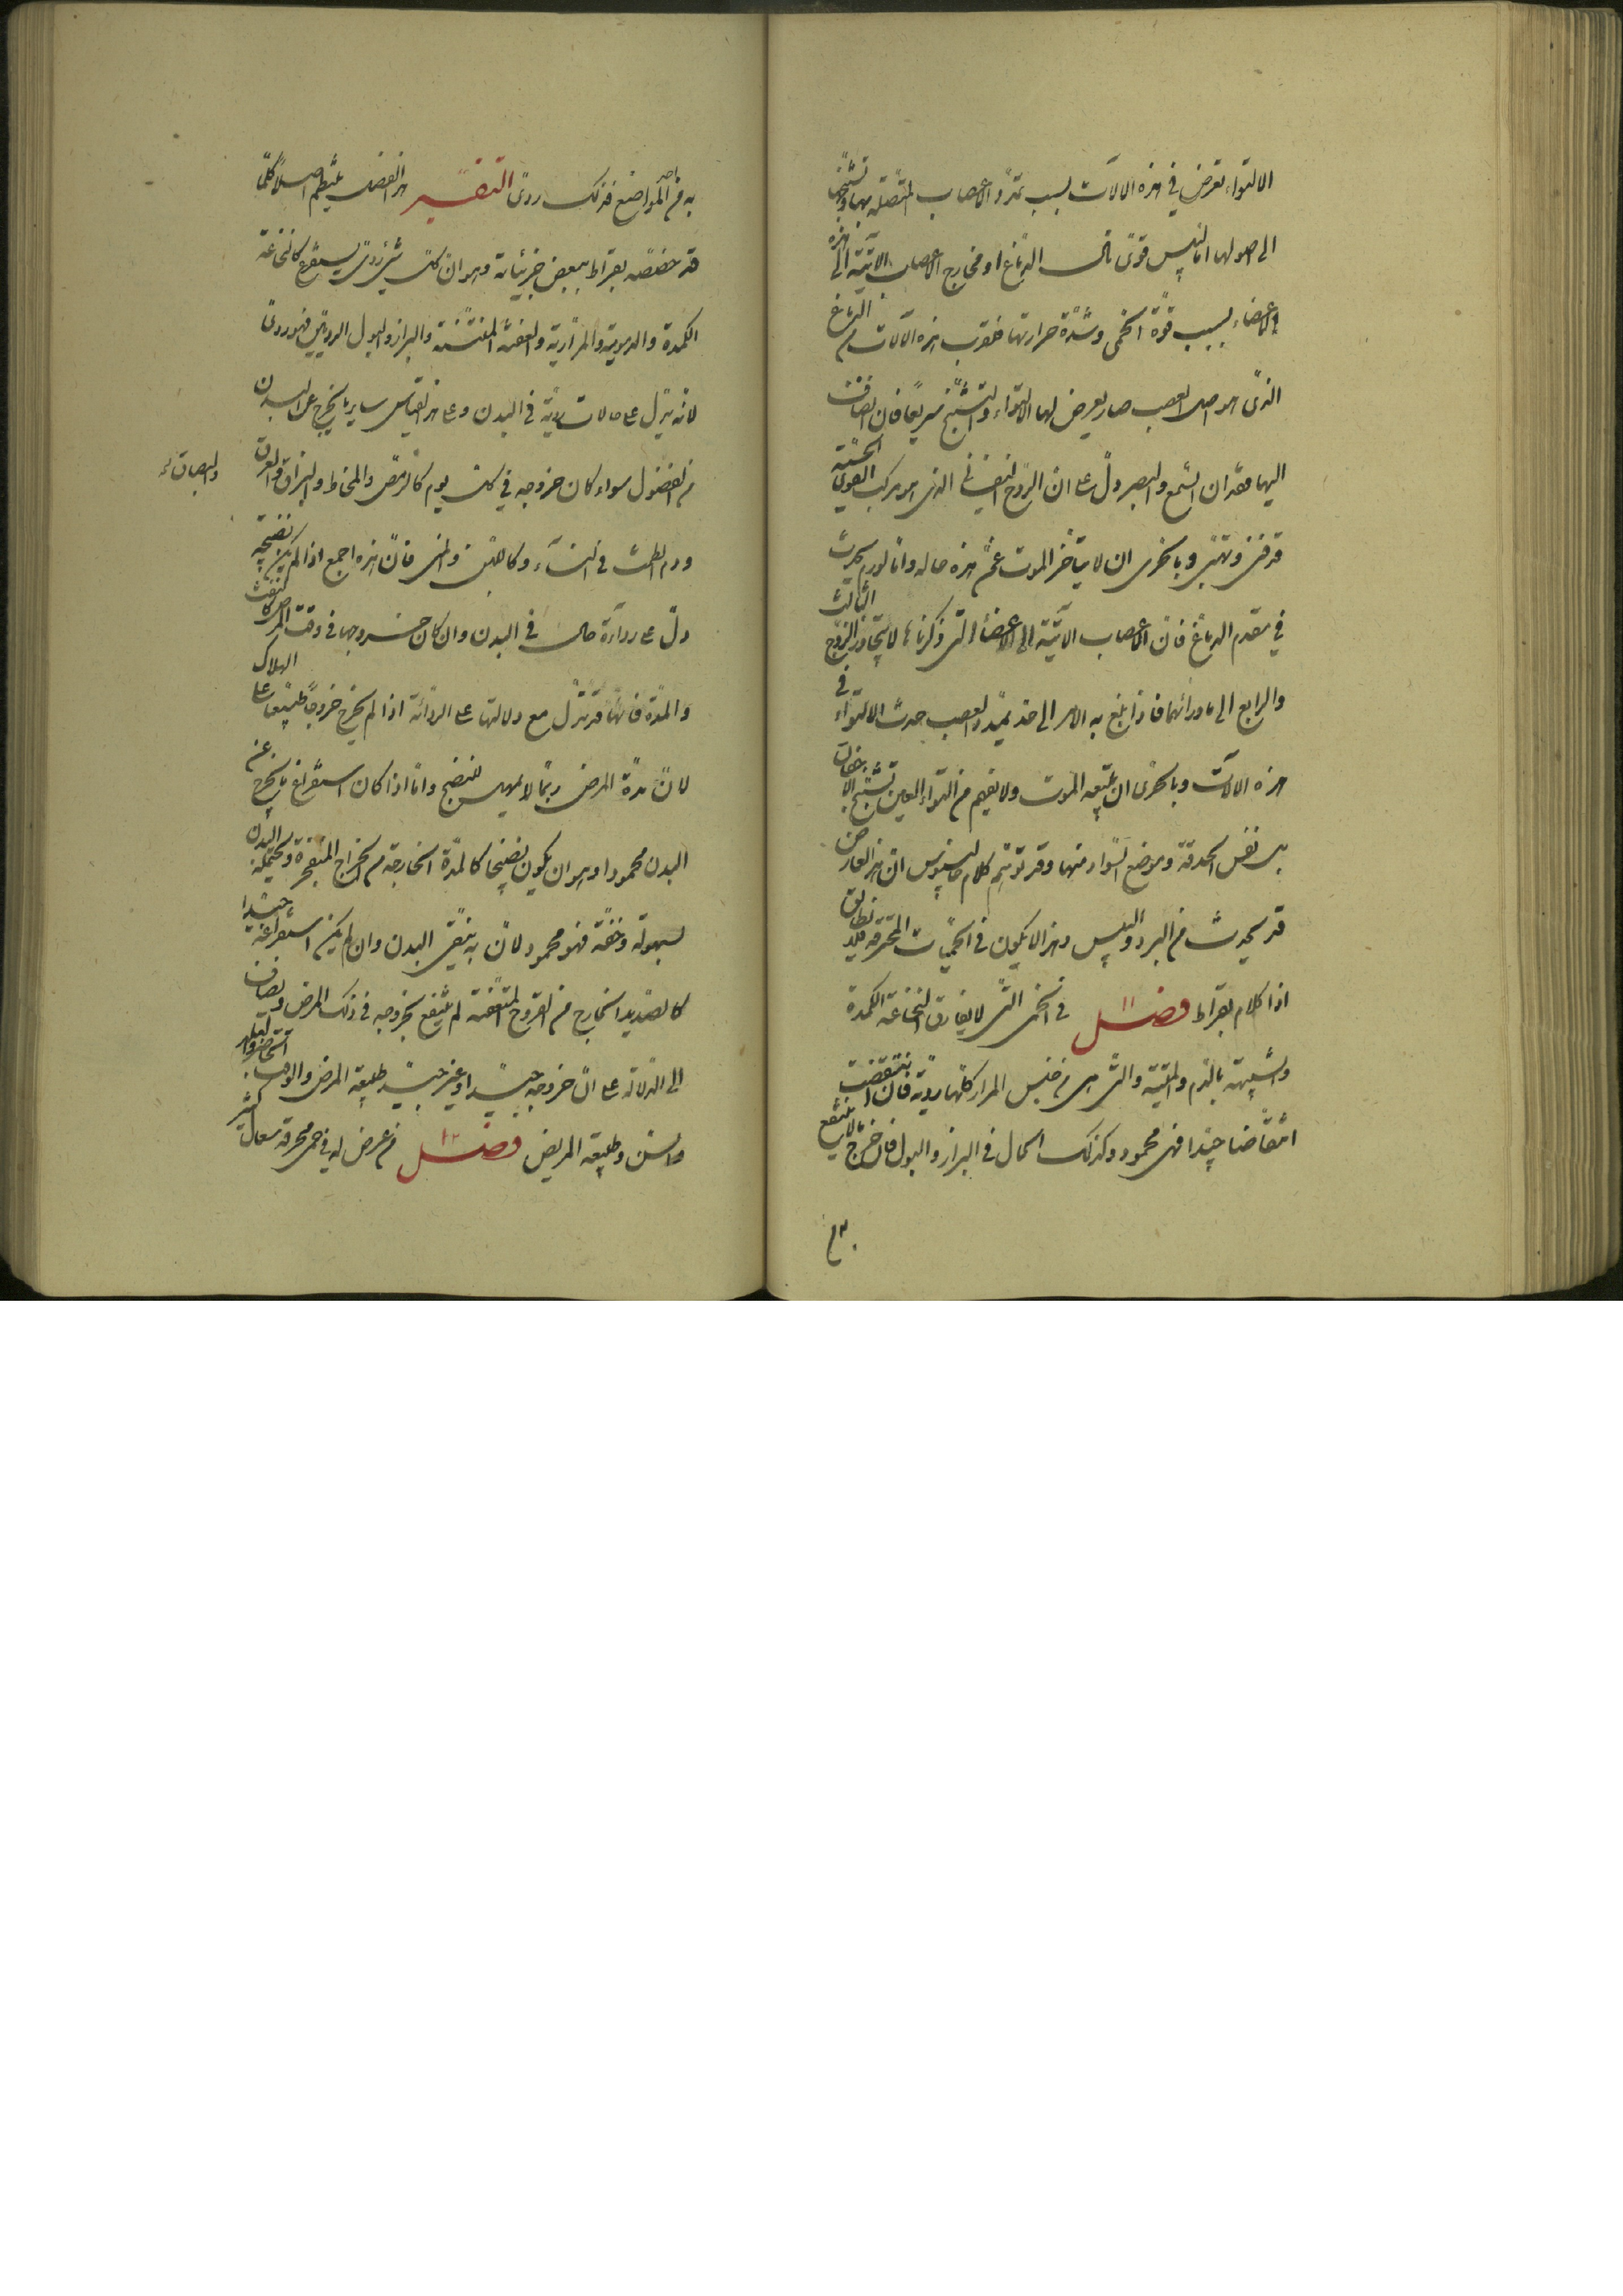 الالتواء تعرض في هذه الالات بسبب تمدد الاعصاب المتصلة بها وتشنجها
الى اصولها اما ليبس قوى نال الدماغ او مخارج الاعصاب الاتية الى هذه
الاعضاء بسبب قوة الحمى وشدة حرارتها فلقرب هذه الآلات من الدماغ
الذى هو اصل العصب صار يعرض لها الالتواء والتشنج سريعا فان انضاف
اليها فقدان السمع والبصر دل على ان الروح النفسانى الذى هو مركب القوى الحسية
قد فنى وتهتى وبالحرى ان لا يتاخر الموت عمن هذه حاله واما لورم يحدث
في مقدم الدماغ فان الاعصاب الاتية الى الاعضاء التى ذكرناها لا يتجاوز الزوج الثالث
والرابع الى ما ورائهما فاذا بلغ به الامر الى حد تمدد العصب حدث الالتواء في
هذه الالات وبالحرى ان يتبعه الموت ولا تفهم من التواء العين تشنج الاجفان
بل نفس الحدقة وموضع السواد منها وقد توهم كلام جالينوس ان هذا العارض
قد يحدث من البرد واليبس وهذا لا يكون في الحميات المحرقة فلا يطابق
اذا كلام بقراط فصل ١١ في الحمى التى لا تفارق النخاعة الكمدة
والشبيهة بالدم والمنتنة والتى هى من جنس المرار كلها ردية فان انتقضت
انتقاضا جيدا فهى محمودة وكذلك الحال في البراز والبول فان خرج ما لا ينتفع
به من احد المواضع فذلك ردى التفسير هذا الفصل ينتظم اصلا كليا
قد خصصه بقراط ببعض جزئياته وهو ان كل شئ ردى يستفرغ كالنخاعة
الكمدة والدموية والمرارية والعفنة المنتنة والبراز والبول الرديين فهو ردى
لانه يدل على حالات ردية في البدن وعلى هذا القياس ساير ما يخرج عن البدن
من الفضول سواء كان خروجه في كل يوم كالرمص والمخاط والبزاق والعرق
والبصاق
ودم الطمث في النساء وكاللبن والمنى فان هذه اجمع اذا لم يكن نضيجة
دل على رداءة حال في البدن وان كان خروجها في وقت المرض كالنفث
والمدة فانها قد تدل مع دلالتها على الرداءة اذا لم يخرج خروجا طبيعيا على الهلاك
لان مدة المرض ربما لا تمهل للنضج واما اذا كان استفراغ ما يخرج عن
البدن محمودا وهو ان يكون نضيجا كالمدة الخارجة من الخراج المنفجرة ويحتمله البدن
بسهولة وخفة فهو محمود لان به ينقى البدن وان لم يكن استفراغه جيدا
كالصديد الخارج من القروح المتعفنة لم ينتفع بخروجه في ذلك المرض ويضاف
الى الدلالة على ان خروجه جيد او غير جيد طبيعة المرض والوقت الحاضر والبلد
والسن وطبيعة المريض فصل ١٢ من عرض له في حمى محرقة سعال كثير